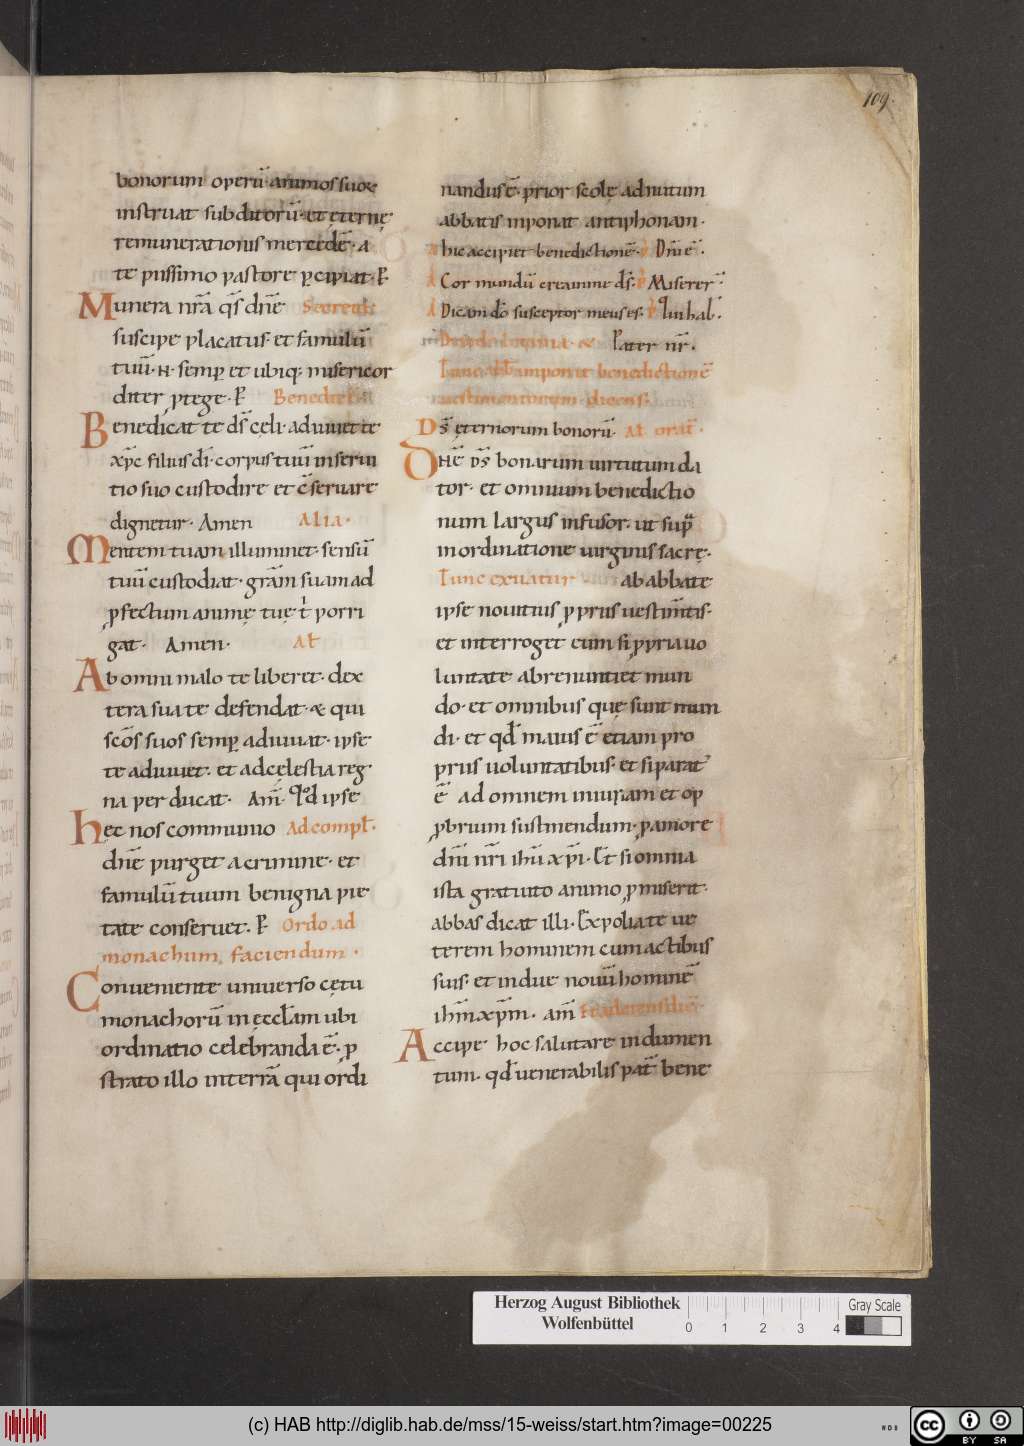 109.
bonorum operū· animos suoꝝ
instruat subditorū· et ęternę
remunerationis mercedē· a
te piissimo pastore p̲cipiat· P̲
Munera nr̄a qs̄ dn̄e Secreta
suscipe placatus· et famulū
tuū· N· semp̲ et ubiq; misericor
diter ꝓtege· P̲ Benedict
Benedicat te ds̄ cęli· adiuuet te
xp̄c filius dī· corpus tuū inserui
tio suo custodire et c̄seruare
dignetur· Amen Alia·
Mentem tuam illuminet· sensū
tuū custodiat· grām suam ad
ꝓfectum animę tuę t̄ porri
gat· Amen· Al̄
Ab omni malo te liberet· dex
tera sua te defendat· & qui
sc̄os suos semp̲ adiuuat· ipse
te adiuuet· et ad cęlestia reg
na per ducat· Am̄· Qd ipse
hęc nos communio Ad compl̄·
dn̄e purget a crimine· et
famulū tuum benigna pie
tate conseruet· P̲ Ordo ad
monachum faciendum·
Conueniente uniuerso cętu
monachorū in ęccl̄am ubi
ordinatio celebranda ē· ꝓ
strato illo interrā qui ordi
nandus ē· prior scolę ad nutum
abbatis inponat antiphonam·
hic accipiet benedictionē· Dn̄i ē·
Cor mundū crea in me ds̄· Miserer̄·
Dicam dō susceptor meus es· Qui hab̄·
Pater nr̄·
Tunc abb̄ imponit benedictionē
uestimentorum· dicens·
Ds̄ ęternorum bonorū· Al̄ orat̄·
Dn̄ē ds̄ bonarum uirtutum da
tor· et omnium benedictio
num largus infusor· ut sup̄
in ordinatione uirginis sacrę·
Tunc exuatur ab abbate
ipse nouitius ꝓpriis uestim̄tis·
et interroget eum si ꝓpria uo
luntate abrenuntiet mun
do· et omnibus quę sunt mun
di· et qd̄ maius ē etiam pro
priis uoluntatibus· et si parat᾿
ē ad omnem iniuriam et op
ꝓbrium sustinendum· ꝓ amore
dn̄i nr̄i ihū xp̄i· Et si omnia
ista gratuito animo ꝓmiserit·
abbas dicat illi· Expoliate ue
terem hominem cum actibus
suis· et indue nouū hominē
ihm̄ xp̄m· am̄
Accipe hoc salutare indumen
tum· qd̄ uenerabilis pat̄ bene
Herzog August Bibliothek
Wolfenbüttel
0 1 2 3 4
Gray Scale
(c) HAB http://diglib.hab.de/mss/15-weiss/start.htm?image=00225
cc
BY SA